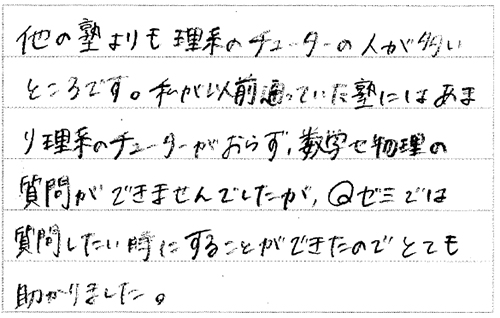 他の塾よりも理系のチューターの人が多い
ところです。私が以前通っていた塾にはあま
り理系のチューターがおらず、数学や物理の
質問ができませんでしたが、Qゼミでは
質問したい時にすることができたのでとても
助かりました。